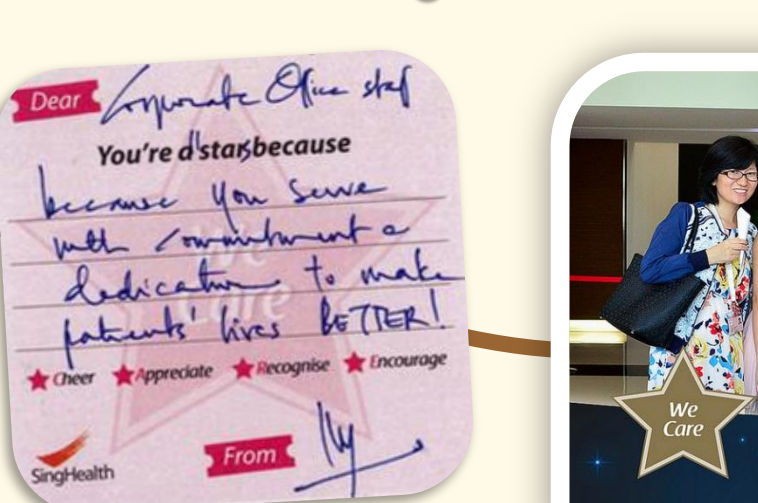 Dear Corporate Office staff
You're a stars because
because you serve
with commitment &
dedication to make
patients' lives BETTER!
We
Care
Cheer Appreciate Recognise Encourage
SingHealth
From
We
Care